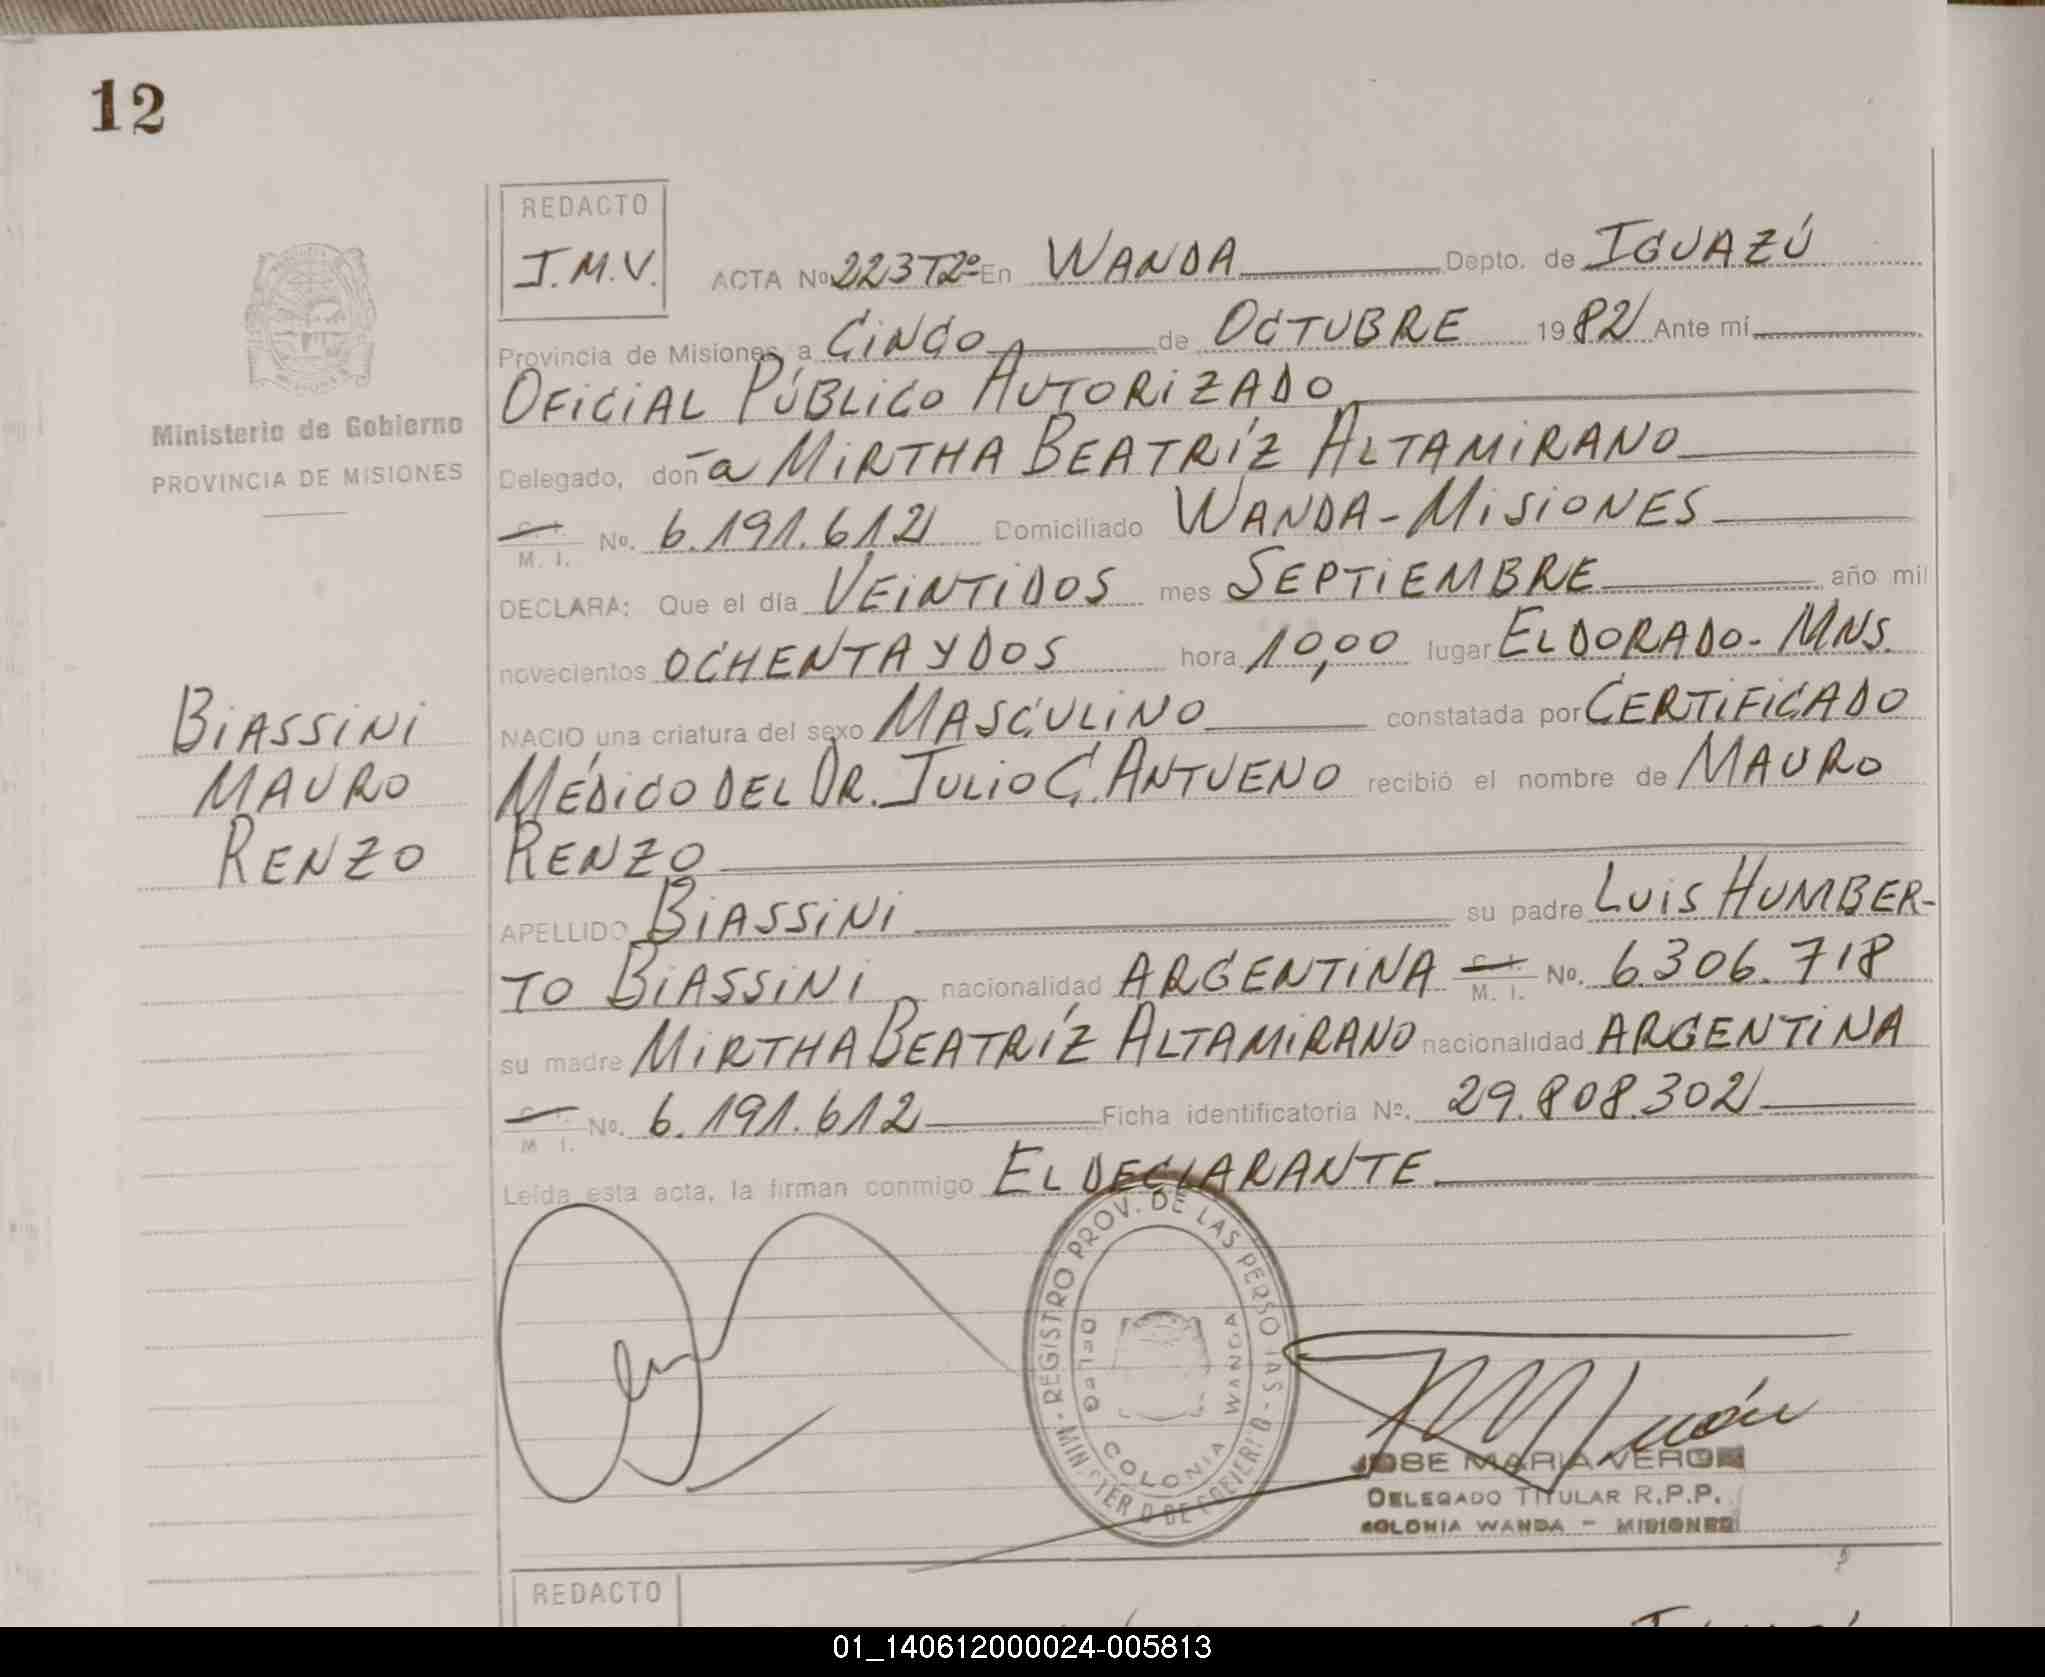 12
REDACTO
J.M.V.
ACTA Nº 223 T2º En WANDA Depto. de IGUAZÚ
Provincia de Misiones, a CINCO de OCTUBRE 1982 Ante mí
OFICIAL PÚBLICO AUTORIZADO
Ministerio de Gobierno
PROVINCIA DE MISIONES
Delegado, doña MIRTHA BEATRÍZ ALTAMIRANO
M. I. No. 6.191.612 Domiciliado WANDA-MISIONES
DECLARA: Que el día VEINTIDOS mes SEPTIEMBRE año mil
novecientos OCHENTA Y DOS hora 10,00 lugar ELDORADO-MNS.
BIASSINI
MAURO
RENZO
NACIO una criatura del sexo MASCULINO constatada por CERTIFICADO
MÉDICO DEL DR. JULIO C. ANTUENO recibió el nombre de MAURO
RENZO
APELLIDO BIASSINI su padre LUIS HUMBER-
TO BIASSINI nacionalidad ARGENTINA M. I. No. 6.306.718
su madre MIRTHA BEATRÍZ ALTAMIRANO nacionalidad ARGENTINA
M. I. No. 6.191.612 Ficha identificatoria Nº. 29.808.302
Leída esta acta, la firman conmigo EL DECLARANTE
REGISTRO PROV. DE LAS PERSONAS - MINISTERIO DE GOBIERNO
COLONIA WANDA
JOSE MARIA VERON
DELEGADO TITULAR R.P.P.
COLONIA WANDA - MISIONES
REDACTO
01_140612000024-005813